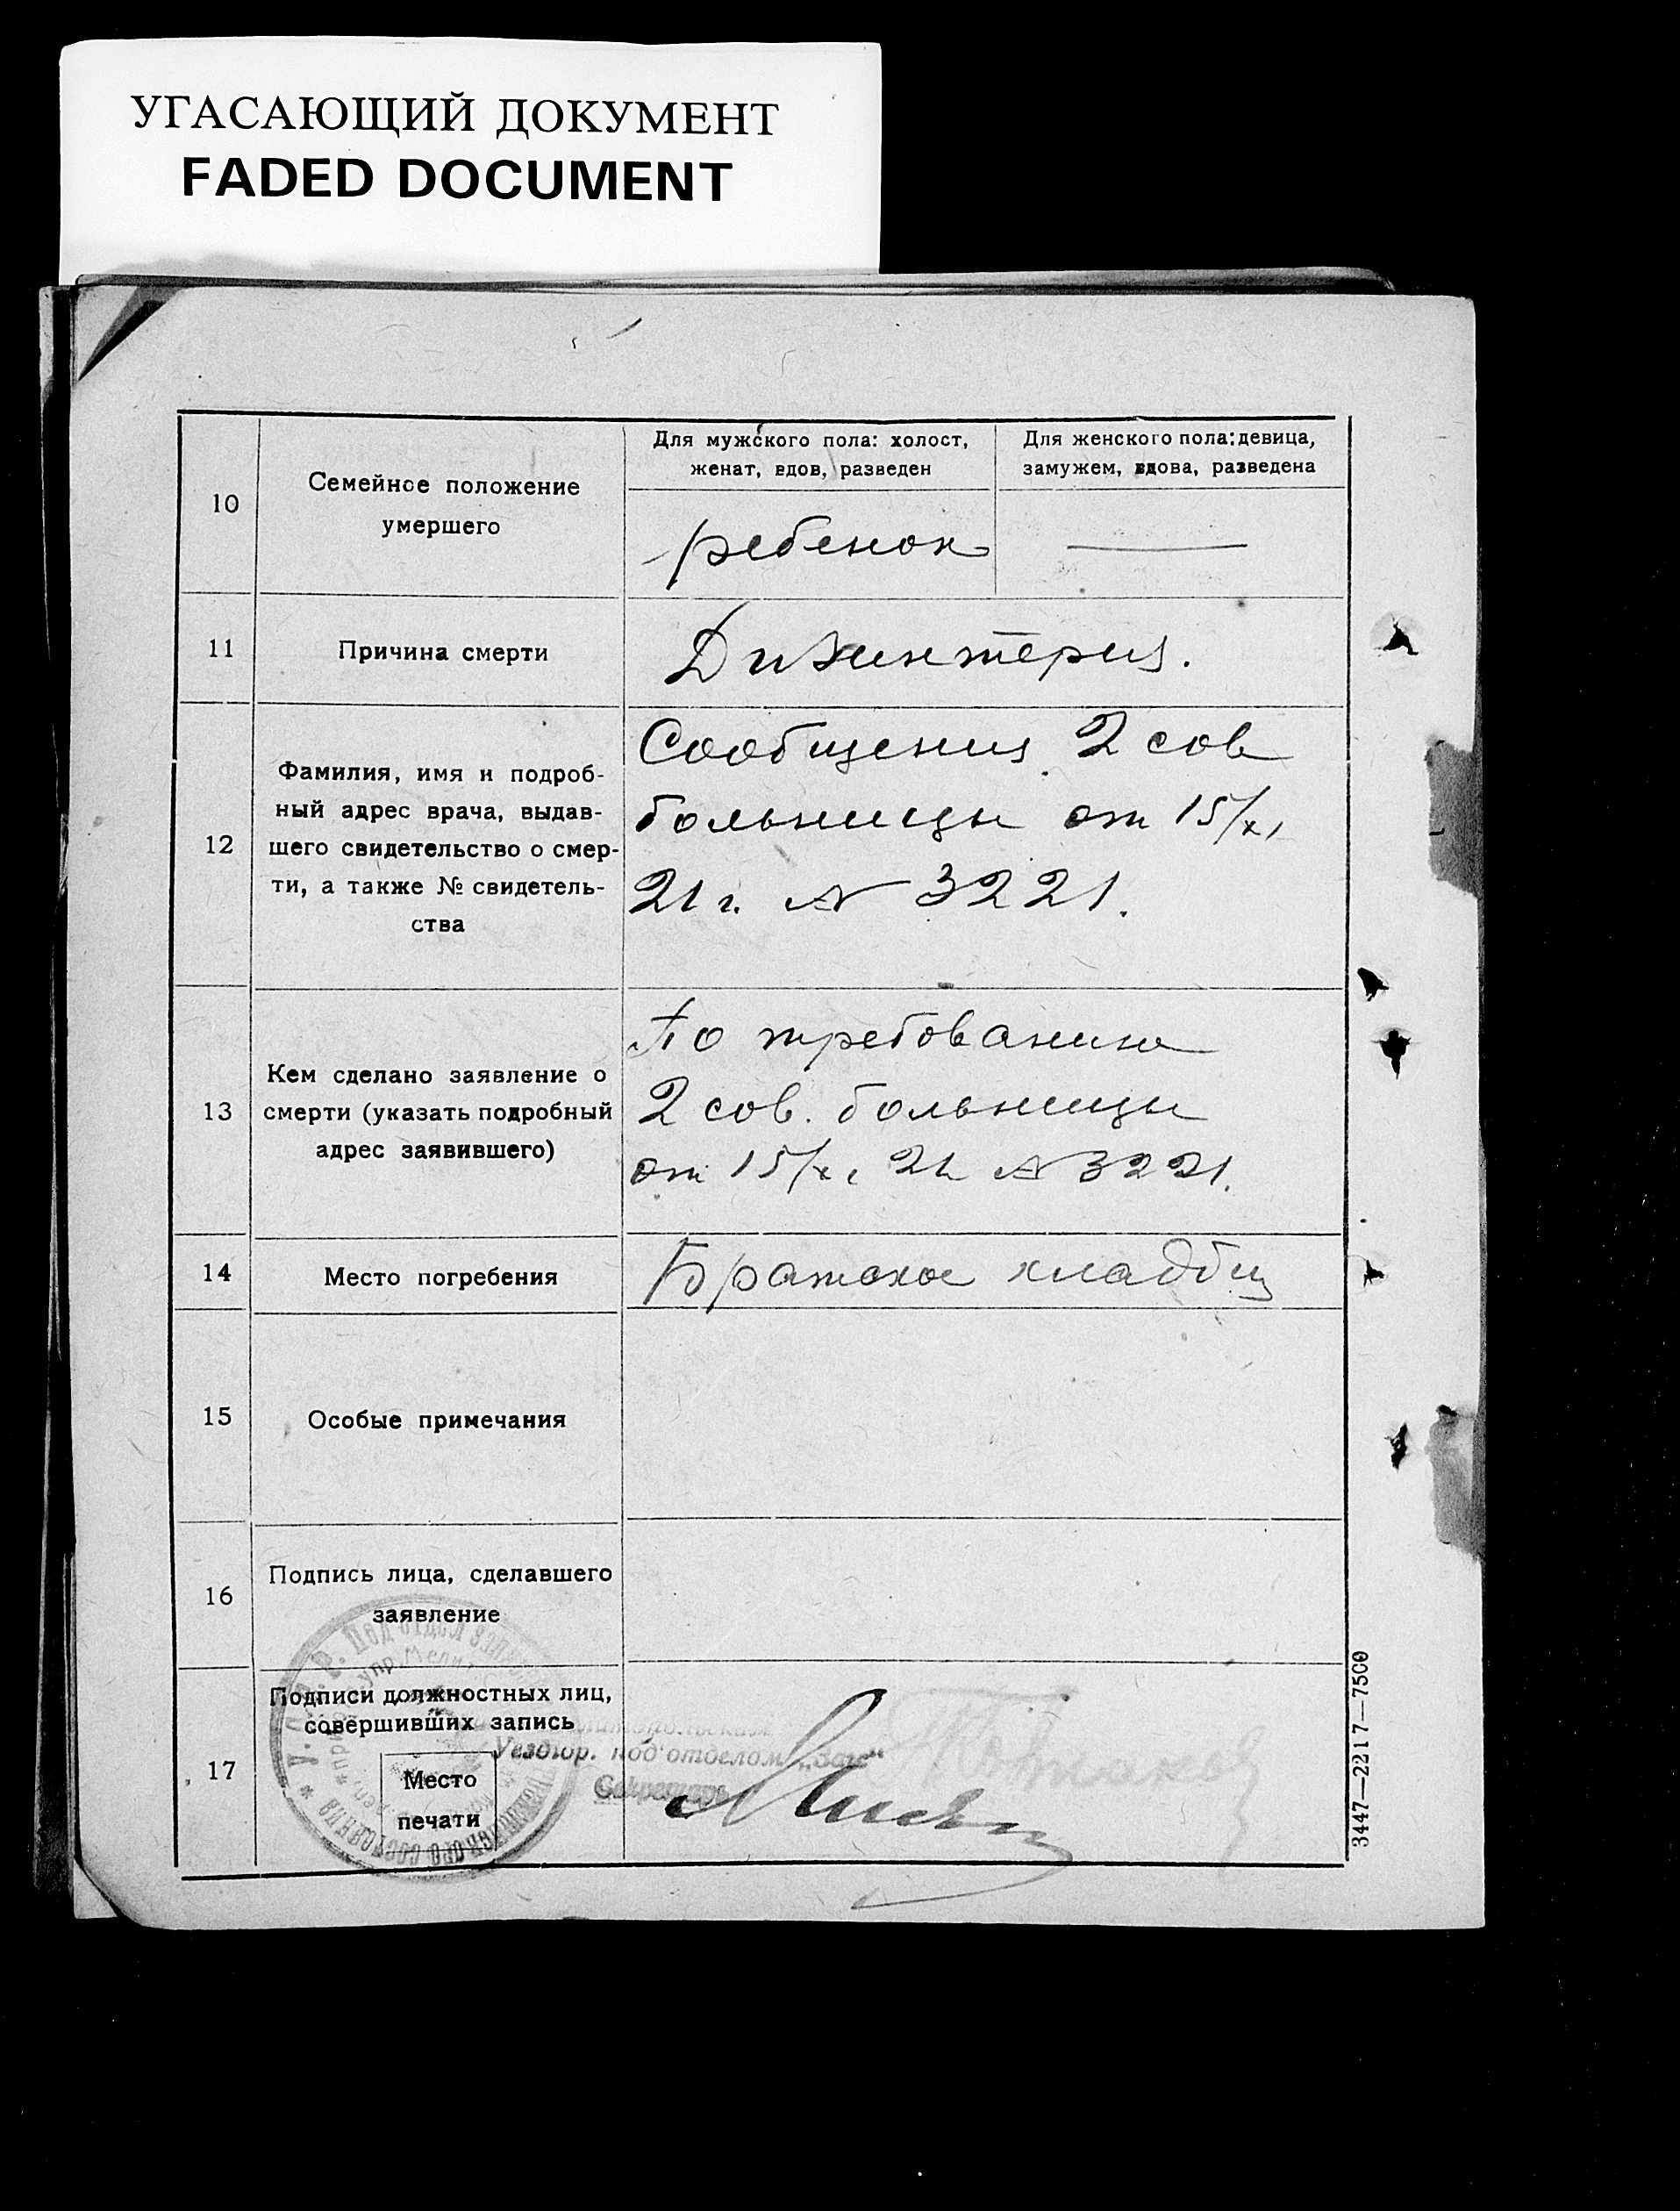 УГАСАЮЩИЙ ДОКУМЕНТ
FADED DOCUMENT
10
Семейное положение
умершего
Для мужского пола: холост,
женат, вдов, разведен
Для женского пола: девица,
замужем, вдова, разведена
ребенок
11
Причина смерти
Дизинтерия.
12
Фамилия, имя и подроб-
ный адрес врача, выдав-
шего свидетельство о смер-
ти, а также № свидетель-
ства
Сообщения 2 сов
больницы от 15/XI
21 г. № 3221.
13
Кем сделано заявление о
смерти (указать подробный
адрес заявившего)
По требованию
2 сов. больницы
от 15/XI 21 № 3221.
14
Место погребения
Братское кладбищ
15
Особые примечания
16
Подпись лица, сделавшего
заявление
17
Подписи должностных лиц,
совершивших запись
Место
печати
Под'отдел записи
гражданского состояния
Уездгор. под'отделом „Загс“
Секретарь
3447—2217—7500